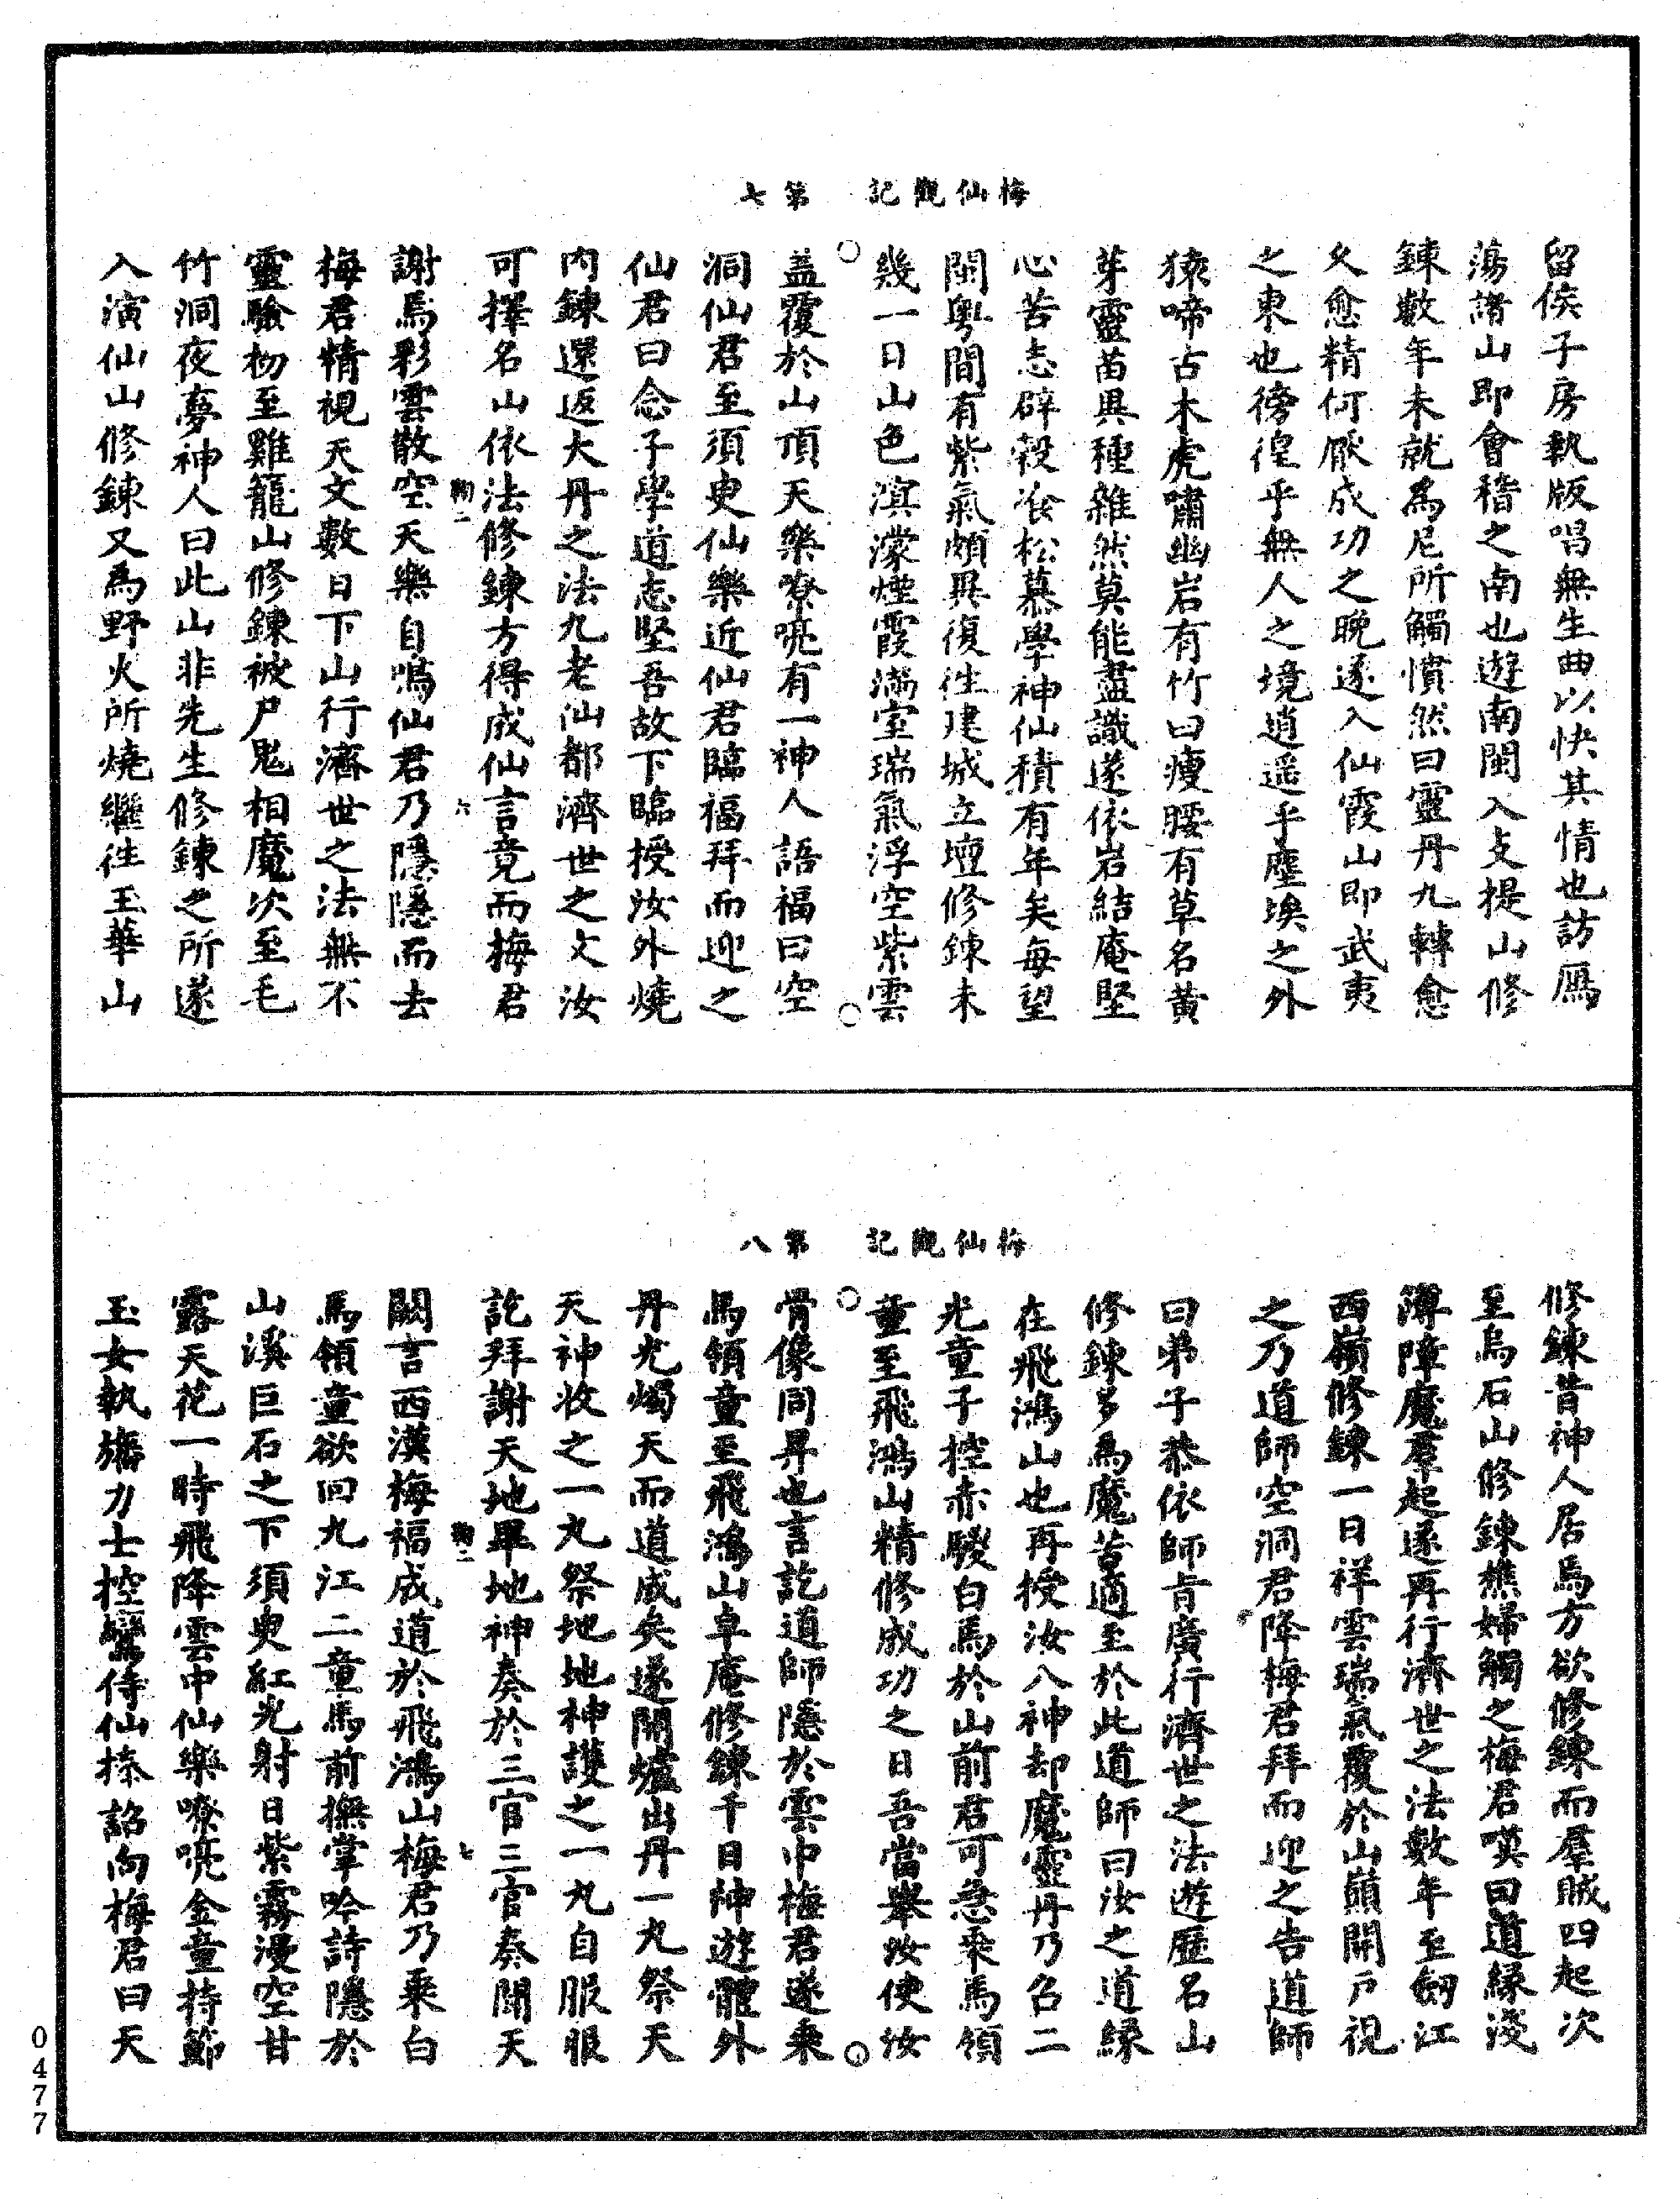 梅仙觀記　第七
留侯子房執版唱無生曲以快其情也訪鴈
蕩諸山即會稽之南也遊南閩入支提山修
鍊數年未就為尼所觸憤然曰靈丹九轉愈
久愈精何厭成功之晚遂入仙霞山即武夷
之東也徬徨乎無人之境逍遥乎塵埃之外
猿啼古木虎嘯幽岩有竹曰瘦腰有草名黄
芽靈苗異種雜然莫能盡識遂依岩結庵堅
心苦志辟穀飡松慕學神仙積有年矣每望
閩粤間有紫氣頗異復徃建城立壇修鍊未
幾一日山色溟濛煙霞滿室瑞氣浮空紫雲
盖覆於山頂天樂嘹喨有一神人語福曰空
洞仙君至須臾仙樂近仙君臨福拜而迎之
仙君曰念子學道志堅吾故下臨授汝外燒
内鍊還返大丹之法九老仙都濟世之文汝
可擇名山依法修鍊方得成仙言竟而梅君
鞠二　六
謝焉彩雲散空天樂自鳴仙君乃隱隱而去
梅君精視天文數日下山行濟世之法無不
靈驗物至雞籠山修鍊被尸鬼相魔次至毛
竹洞夜夢神人曰此山非先生修鍊之所遂
入演仙山修鍊又為野火所燒繼徃玉華山
梅仙觀記　第八
修鍊昔神人居焉方欲修鍊而羣賊四起次
至烏石山修鍊樵婦觸之梅君嘆曰道緣淺
薄障魔羣起遂再行濟世之法數年至劒江
西嶺修鍊一日祥雲瑞氣覆於山巔開戶視
之乃道師空洞君降梅君拜而迎之告道師
曰弟子恭依師旨廣行濟世之法遊歷名山
修鍊多為魔苦適至於此道師曰汝之道緣
在飛鴻山也再授汝八神却魔靈丹乃召二
光童子控赤騣白馬於山前君可急乘馬領
童至飛鴻山精修成功之日吾當舉汝使汝
骨像同昇也言訖道師隱於雲中梅君遂乘
馬領童至飛鴻山卓庵修鍊千日神遊體外
丹光燭天而道成矣遂開爐出丹一丸祭天
天神收之一丸祭地地神護之一丸自服服
訖拜謝天地畢地神奏於三官三官奏聞天
鞠二　七
闕言西漢梅福成道於飛鴻山梅君乃乘白
馬領童欲回九江二童馬前撫掌吟詩隱於
山溪巨石之下須臾紅光射日紫霧漫空甘
露天花一時飛降雲中仙樂嘹喨金童持節
玉女執旛力士控鸞侍仙捧詔向梅君曰天
0477